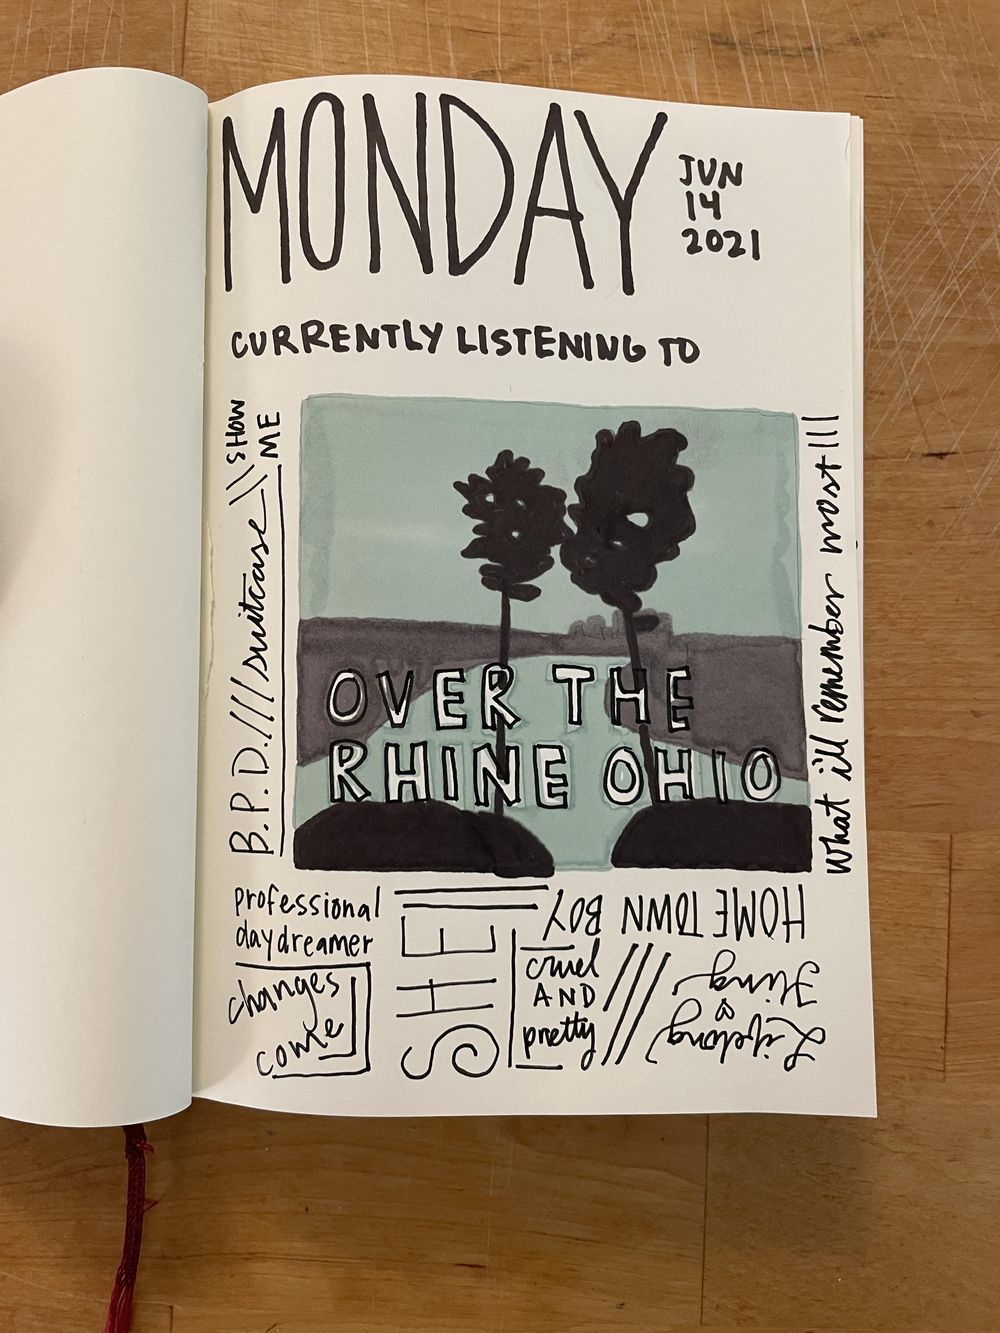 MONDAY
JUN
14
2021
CURRENTLY LISTENING TO
B.P.D.///suitcase\\SHOW
ME
OVER THE
RHINE OHIO
What ill remember most|||
professional
daydreamer
changes
come
SHE
HOMETOWN BOY
cruel
AND
pretty
///
Lifelong
Fling